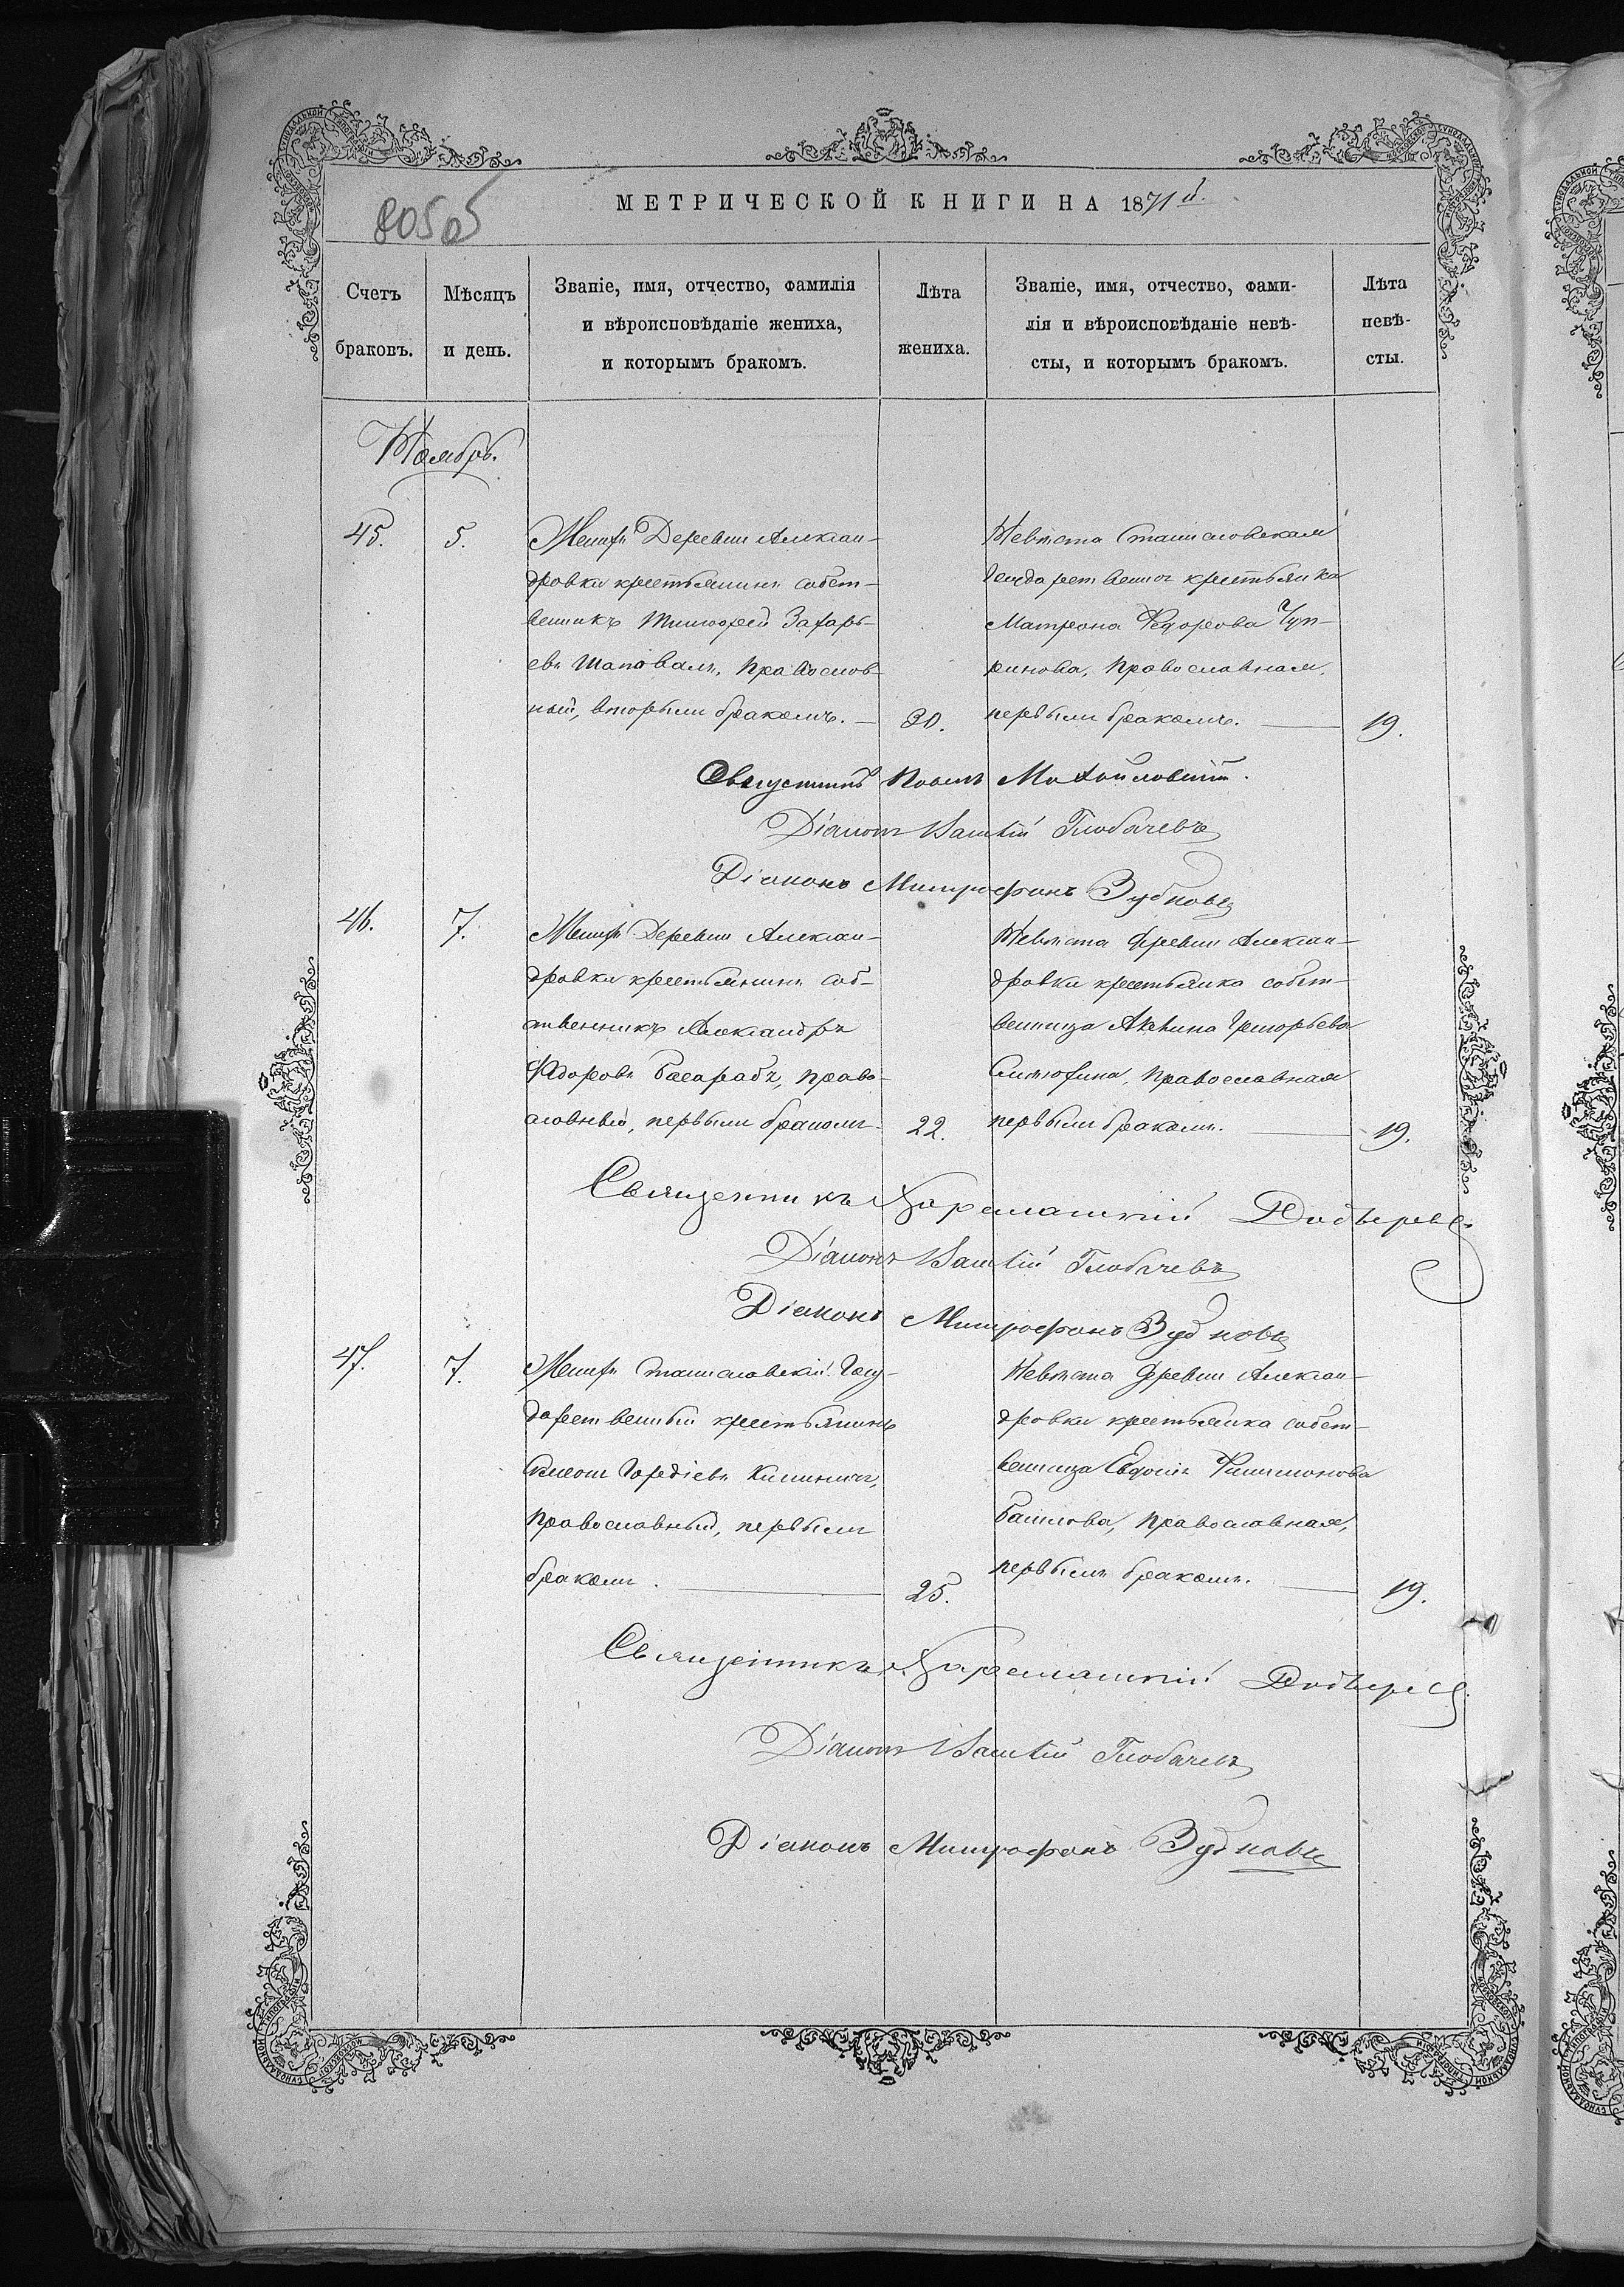 МЕТРИЧЕСКОЙ КНИГИ НА 1871й.
Счетъ браковъ.
Мѣсяцъ и день.
Званіе, имя, отчество, фамилія
и вѣроисповѣданіе жениха,
и которымъ бракомъ.
Лѣта жениха.
Званіе, имя, отчество, фами-
лія и вѣроисповѣданіе невѣ-
сты, и которымъ бракомъ.
Лѣта невѣ-
сты.
Ноябрь.
45.
5.
Женихъ Деревни Алексан-
дровки крестьянинъ собст-
венникъ Тимофей Захарь-
евъ Шаповалъ, Православ-
ный, вторымъ бракомъ. —
30.
Невѣста Станиславская
Государственная крестьянка
Матрона Федорова Чуп-
ринова, Православная,
первымъ бракомъ. —
19.
Павелъ
Діаконъ Василій Глобачевъ
Діаконъ Митрофанъ Зубковъ
46.
7.
Женихъ Деревни Алексан-
дровки крестьянинъ соб-
ственникъ Александръ
Федоровъ Басарабъ, Право-
славный, первымъ бракомъ
22.
Невѣста Деревни Алексан-
дровки крестьянка собст-
венница Акилина Григорьева
Православная
первымъ бракомъ. —
19.
Священникъ Харлампій
Діаконъ Василій Глобачевъ
Діаконъ Митрофанъ Зубковъ
47.
7.
Женихъ Станиславскій Госу-
дарственный крестьянинъ
Симеонъ Гордіевъ
Православный, первымъ
бракомъ. —
25.
Невѣста Деревни Алексан-
дровки крестьянка собст-
венница Евдокія Филимонова
Православная,
первымъ бракомъ. —
19.
Священникъ Харлампій
Діаконъ Василій Глобачевъ
Діаконъ Митрофанъ Зубковъ